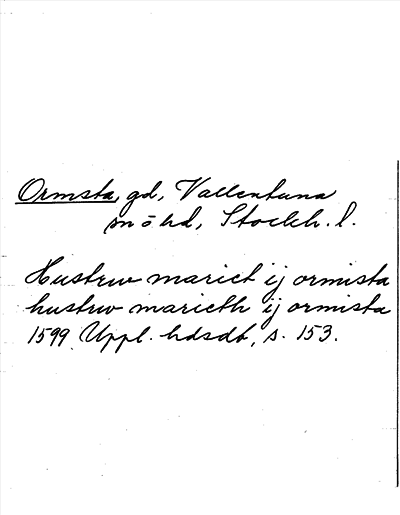 Ormsta, gd, Vallentuna
sn o hd, Stockh. l.
Hustrw mariet ij ormista
hustrw marieth ij ormista
1599 Uppl. hdsdb, s. 153.